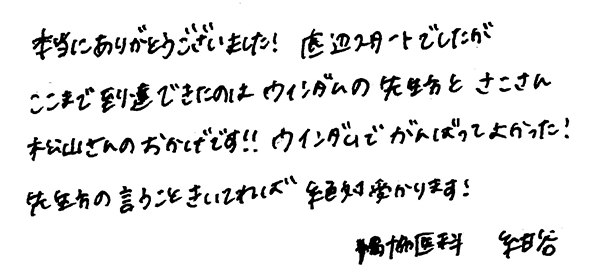 本当にありがとうございました! 底辺スタートでしたが
ここまで到達できたのは ウインダムの 先生方と さこさん
松山さんの おかげです!! ウインダムで がんばってよかった!
先生方の言うこときいてれば 絶対受かります!
獨協医科 紺谷